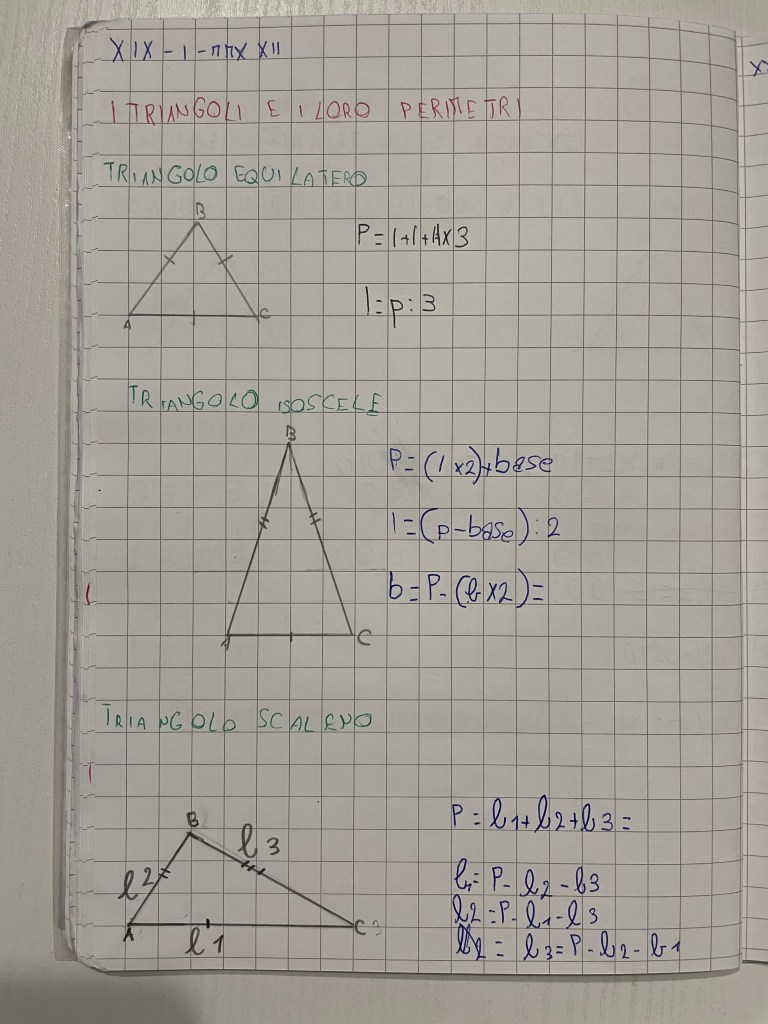 XIX - I - MMXXII
I TRIANGOLI E I LORO PERIMETRI
TRIANGOLO EQUILATERO
B
A
C
P = l+l+l x 3
l = p : 3
TRIANGOLO ISOSCELE
B
A
C
P = (l x2)+base
l = (p-base) : 2
b = P - (l x2) =
TRIANGOLO SCALENO
B
l2
l3
A
l1
C
P = l1 + l2 + l3 =
l1 = P - l2 - l3
l2 = P - l1 - l3
l3 = P - l2 - l1